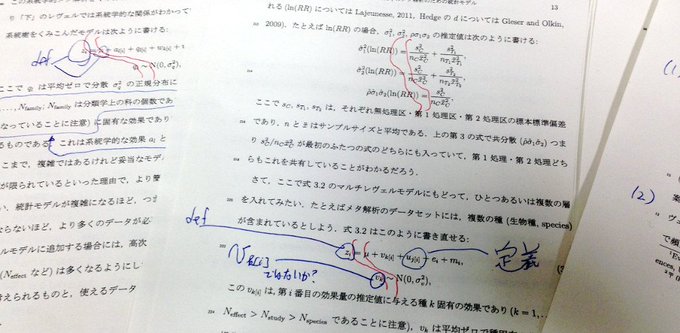 り「下」のレベルでは系統学的な関係がわかって
系統樹をくみこんだモデルは次のように書ける:
z_i = μ + a_{k[i]} + q_{l[i]} + w_{k[i]} +
def
q_l ∼ N(0, σ_q^2),
ここで q_l は平均ゼロで分散 σ_q^2 の正規分布に
N_family; N_family は分類学上の科の個数であ
なっていることに注意) に固有な効果であり
るものである. これは系統学的な効果 a_l と
ここまで, 複雑ではあるけれど妥当なモデ
が限られているといった理由で, より簡
い. 統計モデルが複雑になるほど, つ
ならないほど, より多くのデータが必
ルモデルに追加する場合には, 高次
(N_effect など) は多くなるようにし
考えられるものと, 使えるデータ
13
れる (ln(RR) については Lajeunesse, 2011, Hedge の d については Gleser and Olkin,
2009). たとえば ln(RR) の場合, σ_1^2, σ_2^2, ρσ_1σ_2 の推定値は次のように書ける:
σ̂_1^2(ln(RR)) = s_C^2/(n_C x̄_C^2) + s_{T1}^2/(n_{T1} x̄_{T1}^2)
σ̂_2^2(ln(RR)) = s_C^2/(n_C x̄_C^2) + s_{T2}^2/(n_{T2} x̄_{T2}^2)
ρ̂σ̂_1σ̂_2(ln(RR)) = s_C^2/(n_C x̄_C^2)
ここで s_C, s_{T1}, s_{T2} は, それぞれ無処理区・第 1 処理区・第 2 処理区の標本標準偏差
であり, n と x̄ はサンプルサイズと平均である. 上の第 3 の式で共分散 (ρ̂σ̂_1σ̂_2) つま
り s_C^2/n_C x̄_C^2 が最初のふたつの式のどちらにも入っていて, 第 1 処理・第 2 処理どち
らもこれを共有していることがわかるだろう.
さて, ここで式 3.2 のマルチレヴェルモデルにもどって, ひとつあるいは複数の層
を入れてみたい. たとえばメタ解析のデータセットには, 複数の種 (生物種, species)
が含まれているとしよう. 式 3.2 はこのように書き直せる:
def
z_i = μ + v_{k[i]} + u_{j[i]} + e_i + m_i,
定義
V_{k[i]}
ではないか?
v_k ∼ N(0, σ_v^2),
この v_{k[i]} は, 第 i 番目の効果量の推定値に与える種 k 固有の効果であり (k = 1, ⋯
N_effect > N_study > N_species であることに注意), v_k は平均ゼロで
(1)
(2)
ヴュ
で頻